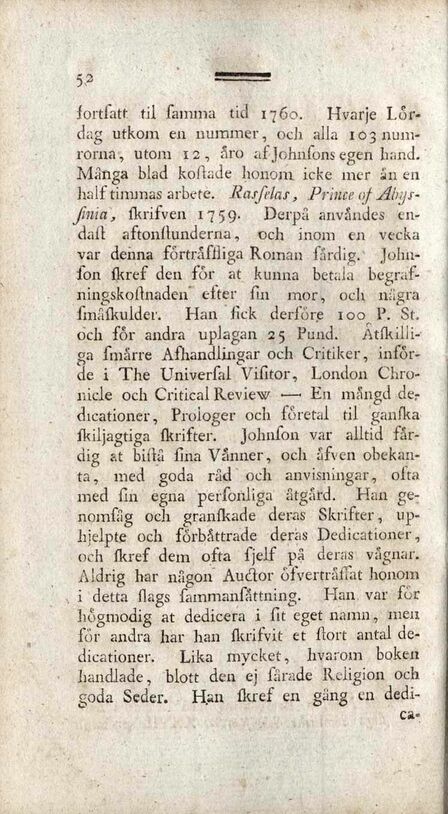 52
fortſatt til ſamma tid 1760. Hvarje Lör-
dag utkom en nummer, och alla 103 num-
rorna, utom 12, äro af Johnſons egen hand.
Många blad koſtade honom icke mer än en
half timmas arbete. Rasſelas, Prince of Abys-
ſinia, ſkrifven 1759. Derpå användes en-
daſt aftonſtunderna, och inom en vecka
var denna förträffliga Roman färdig. John-
ſon ſkref den för at kunna betala begraf-
ningskoſtnaden efter ſin mor, och några
ſmåſkulder. Han fick derföre 100 P. St.
och för andra uplagan 25 Pund. Åtſkilli-
ga ſmärre Afhandlingar och Critiker, inför-
de i The Univerſal Viſitor, London Chro-
nicle och Critical Review — En mängd de-
dicationer, Prologer och företal til ganſka
ſkiljagtiga ſkrifter. Johnſon var alltid fär-
dig at biſtå ſina Vänner, och äfven obekan-
ta, med goda råd och anvisningar, ofta
med ſin egna perſonliga åtgärd. Han ge-
nomſåg och granſkade deras Skrifter, up-
hjelpte och förbättrade deras Dedicationer,
och ſkref dem ofta ſjelf på deras vägnar.
Aldrig har någon Auctor öfverträffat honom
i detta ſlags ſammanſättning. Han var för
högmodig at dedicera i ſit eget namn, men
för andra har han ſkrifvit et ſtort antal de-
dicationer. Lika mycket, hvarom boken
handlade, blott den ej ſårade Religion och
goda Seder. Han ſkref en gång en dedi-
ca-